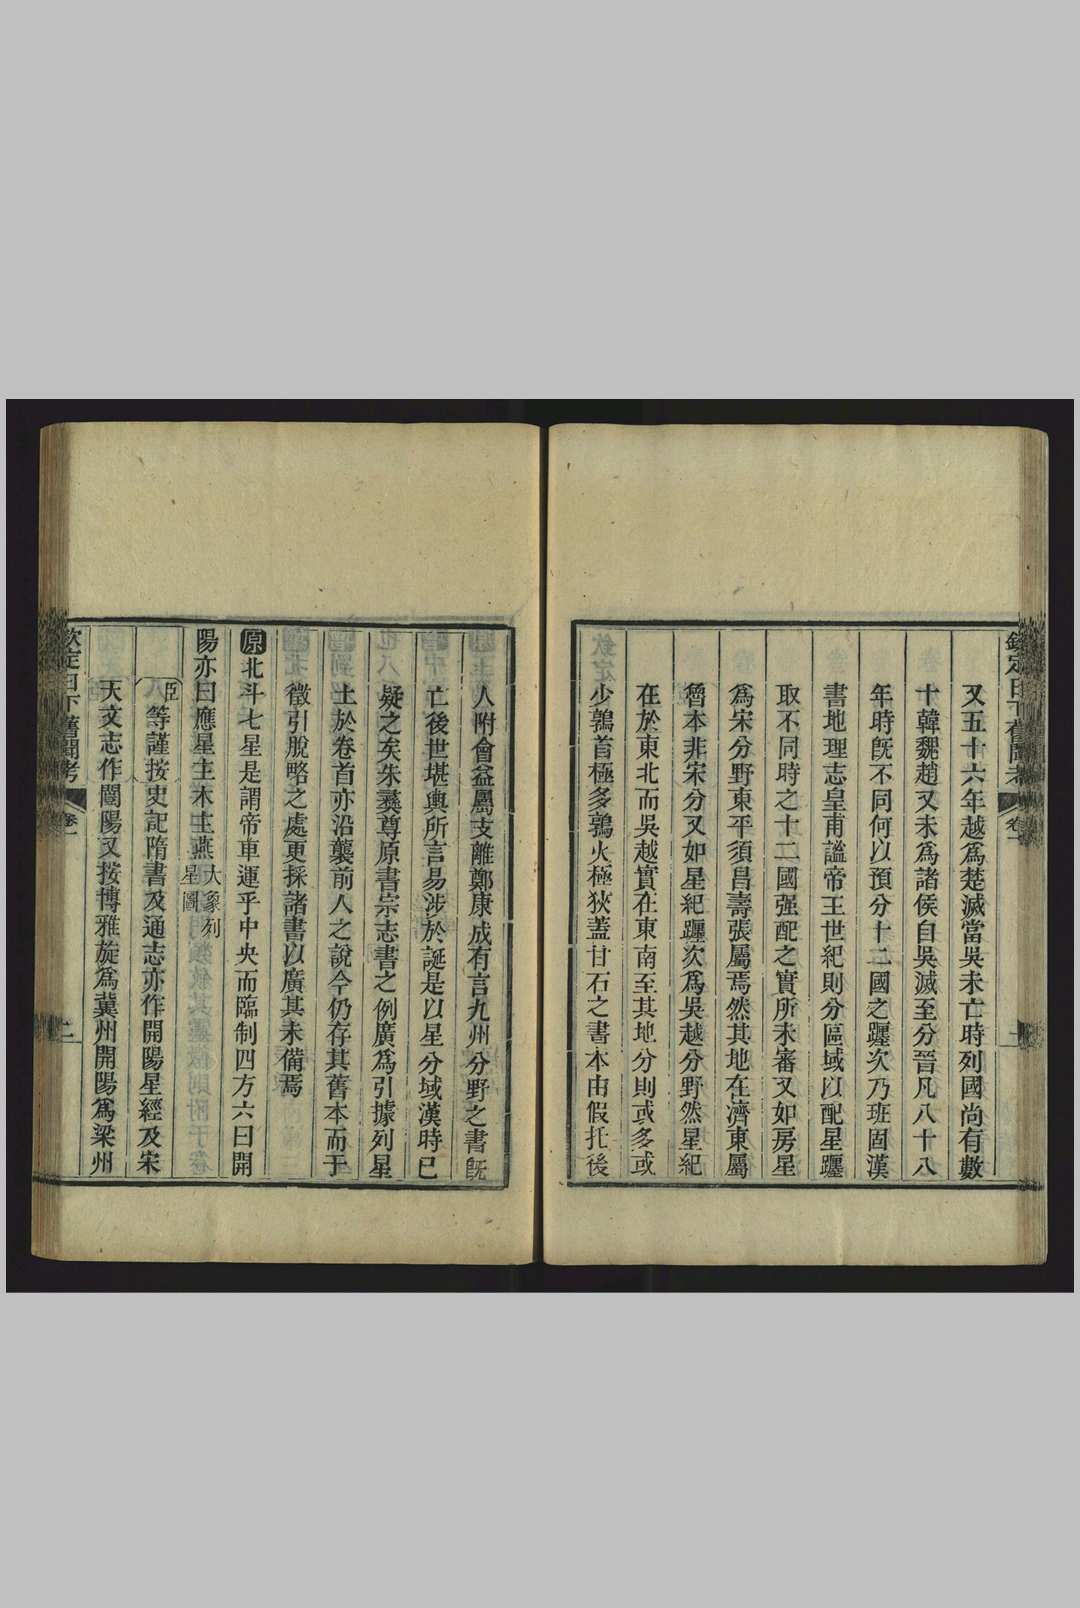 欽定日下舊聞考 卷一
又五十六年越爲楚滅當吳未亡時列國尚有數
十韓魏趙又未爲諸侯自吳滅至分晉凡八十八
年時旣不同何以預分十二國之躔次乃班固漢
書地理志皇甫謐帝王世紀則分區域以配星躔
取不同時之十二國强配之實所未審又如房星
爲宋分野東平須昌壽張屬焉然其地在濟東屬
魯本非宋分又如星紀躔次爲吳越分野然星紀
在於東北而吳越實在東南至其地分則或多或
少鶉首極多鶉火極狹蓋甘石之書本由假托後
人附會益屬支離鄭康成有言九州分野之書旣
亡後世堪輿所言易涉於誕是以星分域漢時已
疑之矣朱彝尊原書宗志書之例廣爲引據列星
土於卷首亦沿襲前人之說今仍存其舊本而于
徵引脫略之處更採諸書以廣其未備焉
原北斗七星是謂帝車運乎中央而臨制四方六曰開
陽亦曰應星主木主燕大象列星圖
臣等謹按史記隋書及通志亦作開陽星經及宋
天文志作闓陽又按博雅旋爲冀州開陽爲梁州
欽定日下舊聞考 卷一 二